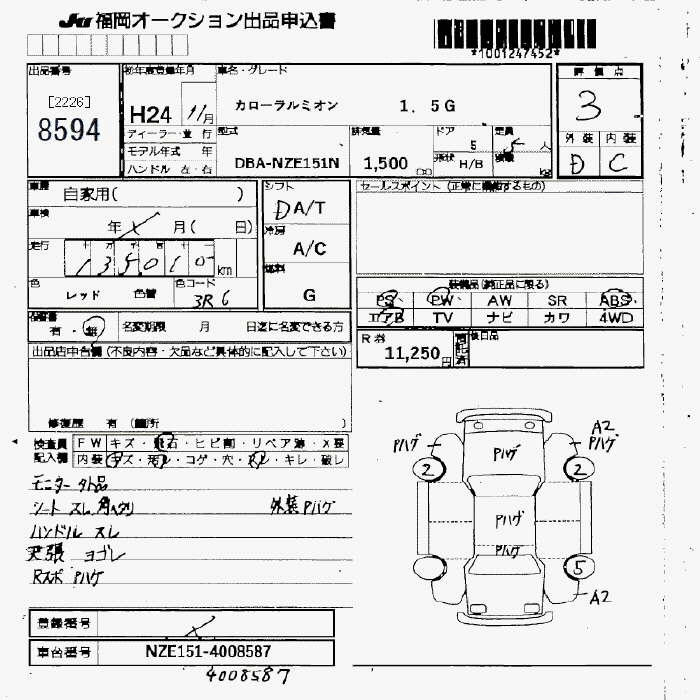 JU 福岡オークション出品申込書
*1001247452*
出品番号
[2226]
8594
初年度登録年月
H24 11月
車名・グレード
カローラルミオン 1.5G
評価点
3
外装 内装
D C
ディーラー・並行
モデル年式 年
ハンドル 左・右
型式
DBA-NZE151N
排気量
1,500 cc
ドア
5
形状 H/B
定員
5 人
積載 kg
車歴 自家用( )
車検 年 月( 日)
走行 十 万 千 百 十
135010 km
色 レッド 色替 色コード 3R6
シフト
D A/T
冷房
A/C
燃料
G
セールスポイント (正常に機能するもの)
装備品(純正品に限る)
PS PW AW SR ABS
エアB TV ナビ カワ 4WD
保証書 有・無 名変期限 月 日迄に名変できる方
R券 11,250円
後日品
出品店申告欄 (不良内容・欠品など具体的に記入して下さい)
修復歴 有 (箇所 )
検査員記入欄
FW キズ・飛石・ヒビ割・リペア跡・X要
内装 キズ・汚レ・コゲ・穴・スレ・キレ・破レ
モニター 外品
シート スレ
外装 Pハゲ
ハンドル スレ
天張 ヨゴレ
Rスポ Pハゲ
Pハゲ
Pハゲ
A2
Pハゲ
2
2
Pハゲ
Pハゲ
5
A2
登録番号
車台番号 NZE151-4008587
4008587